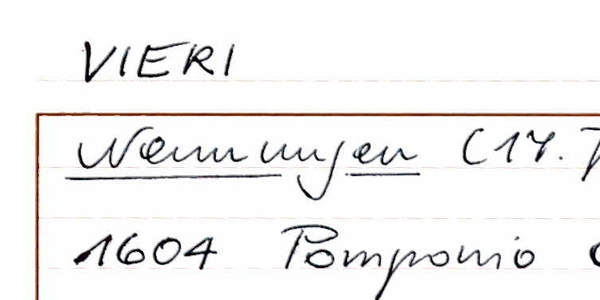 VIERI
Nennungen (17. J
1604 Pomponio